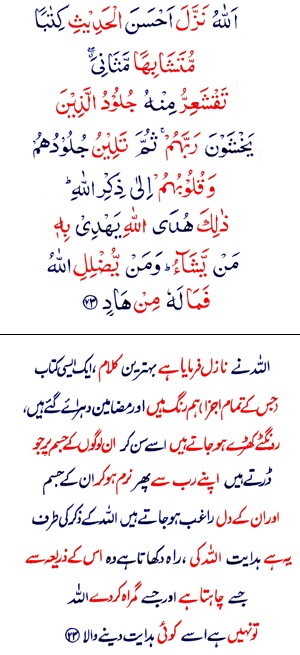 اَللّٰهُ نَزَّلَ اَحْسَنَ الْحَدِیْثِ كِتٰبًا
مُّتَشَابِهًا مَّثَانِیَ ۖۗ
تَقْشَعِرُّ مِنْهُ جُلُوْدُ الَّذِیْنَ
یَخْشَوْنَ رَبَّهُمْ ۚ ثُمَّ تَلِیْنُ جُلُوْدُهُمْ
وَ قُلُوْبُهُمْ اِلٰی ذِكْرِ اللّٰهِ ؕ
ذٰلِكَ هُدَی اللّٰهِ یَهْدِیْ بِهٖ
مَنْ یَّشَآءُ ؕ وَ مَنْ یُّضْلِلِ اللّٰهُ
فَمَا لَهٗ مِنْ هَادٍ ﴿۲۳﴾
اللہ نے نازل فرمایا ہے بہترین کلام، ایک ایسی کتاب
جس کے تمام اجزا ہم رنگ ہیں اور مضامین دہرائے گئے ہیں،
رونگٹے کھڑے ہو جاتے ہیں اسے سن کر ان لوگوں کے جسم پر جو
ڈرتے ہیں اپنے رب سے پھر نرم ہو کر ان کے جسم
اور ان کے دل راغب ہو جاتے ہیں اللہ کے ذکر کی طرف
یہ ہے ہدایت اللہ کی، راہ دکھاتا ہے وہ اس کے ذریعہ سے
جسے چاہتا ہے اور جسے گمراہ کر دے اللہ
تو نہیں ہے اسے کوئی ہدایت دینے والا ﴿۲۳﴾